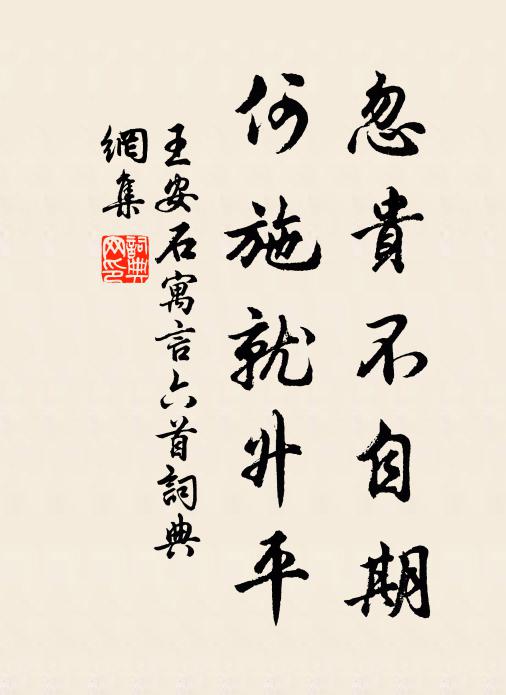 忽貴不自期
何施就升平
王安石寓言六首詞典
網集
詞典
网印